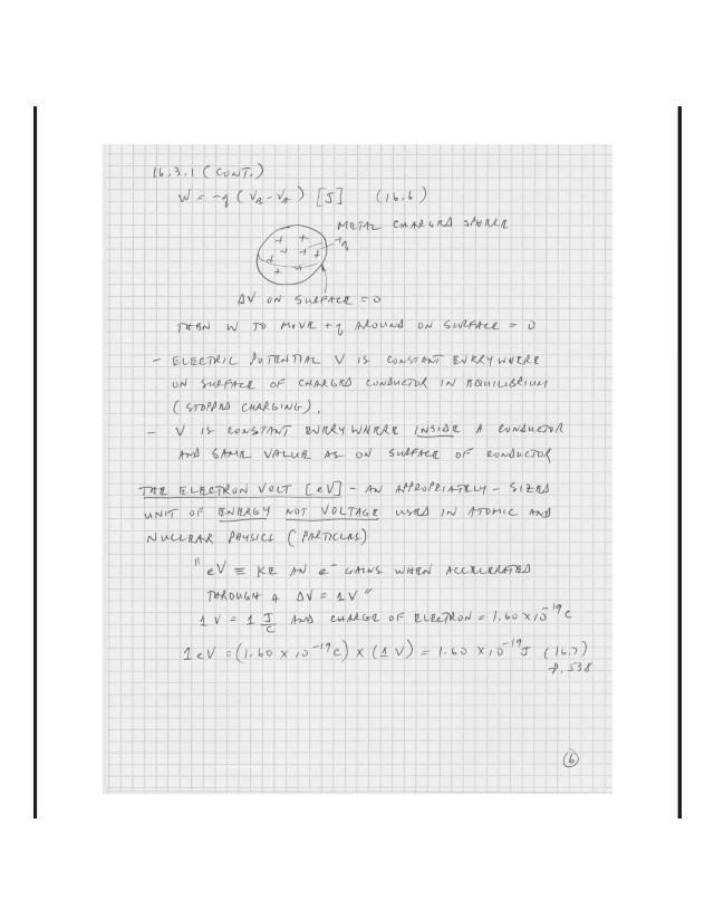 16.3.1 (CONT.)
W = -q (VB - VA) [J] (16.6)
METAL CHARGED SPHERE
+q
ΔV ON SURFACE = 0
THEN W TO MOVE +q AROUND ON SURFACE = 0
- ELECTRIC POTENTIAL V IS CONSTANT EVERYWHERE
ON SURFACE OF CHARGED CONDUCTOR IN EQUILIBRIUM
(STOPPED CHARGING).
- V IS CONSTANT EVERYWHERE INSIDE A CONDUCTOR
AND SAME VALUE AS ON SURFACE OF CONDUCTOR
THE ELECTRON VOLT [eV] - AN APPROPRIATELY - SIZED
UNIT OF ENERGY NOT VOLTAGE USED IN ATOMIC AND
NUCLEAR PHYSICS (PARTICLES)
"eV ≡ KE AN e⁻ GAINS WHEN ACCELERATED
THROUGH A ΔV = 1V"
1 V = 1 J/C AND CHARGE OF ELECTRON = 1.60 x 10⁻¹⁹ C
1 eV = (1.60 x 10⁻¹⁹ C) x (1 V) = 1.60 x 10⁻¹⁹ J (16.7)
P. 538
6